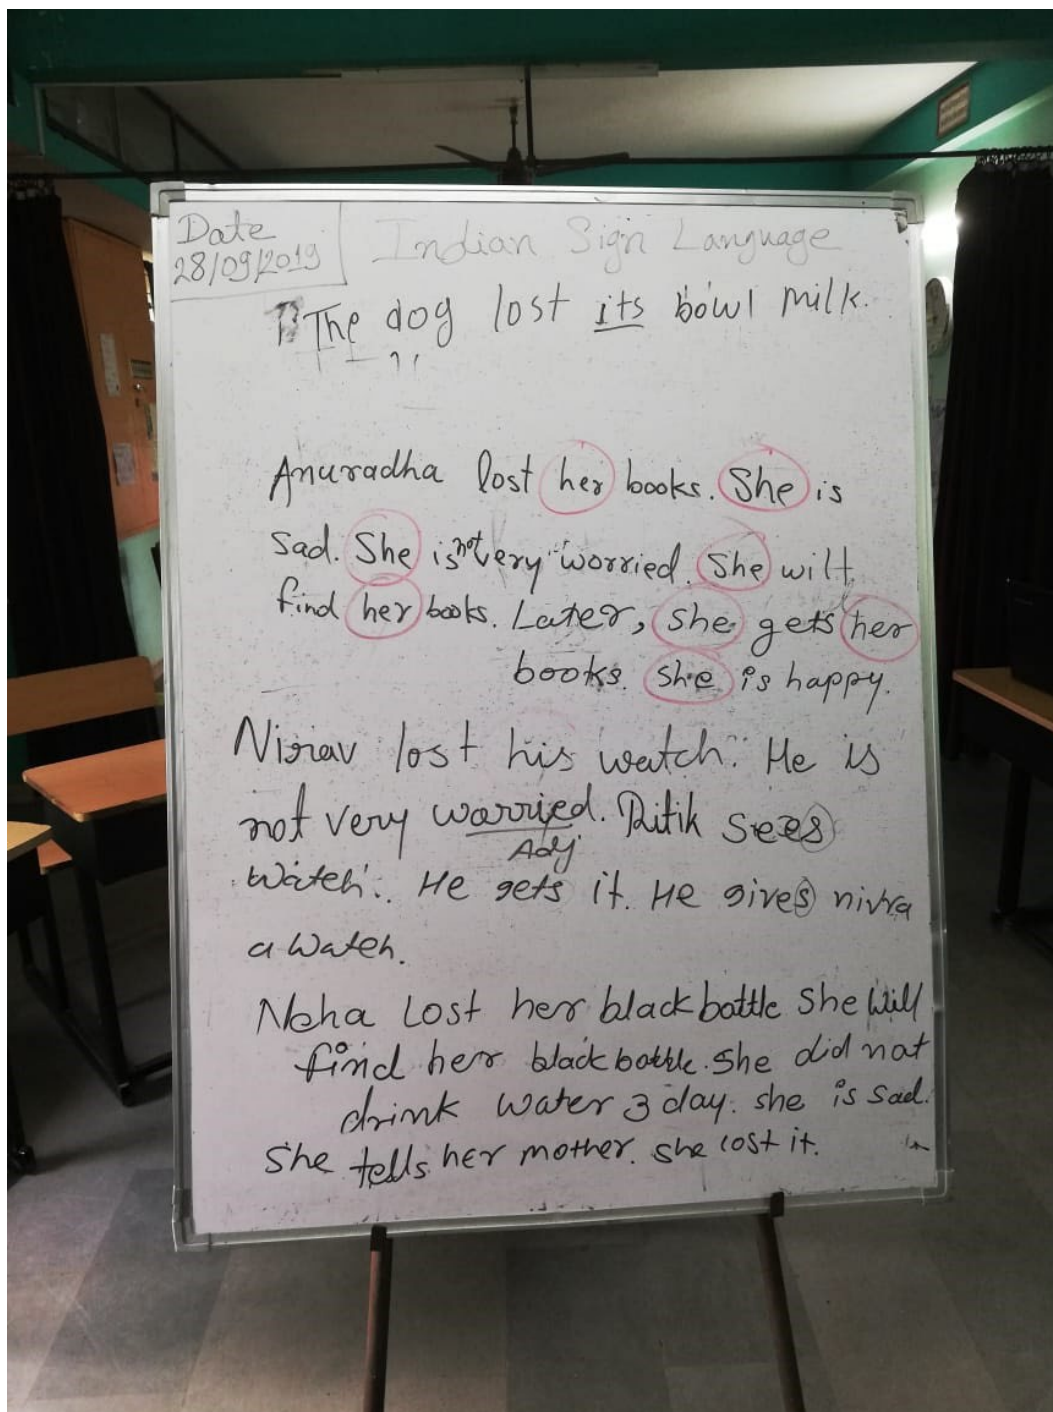 Date
28/09/2019
Indian Sign Language
The dog lost its bowl milk.
Anuradha lost her books. She is
sad. She is not very worried. She will
find her books. Later, she gets her
books. She is happy.
Nirav lost his watch. He is
not very worried. Ritik sees
Adj
watch. He gets it. He gives nivra
a watch.
Neha Lost her black bottle She will
find her black bottle. She did not
drink water 3 day. she is sad.
She tells her mother. she lost it.